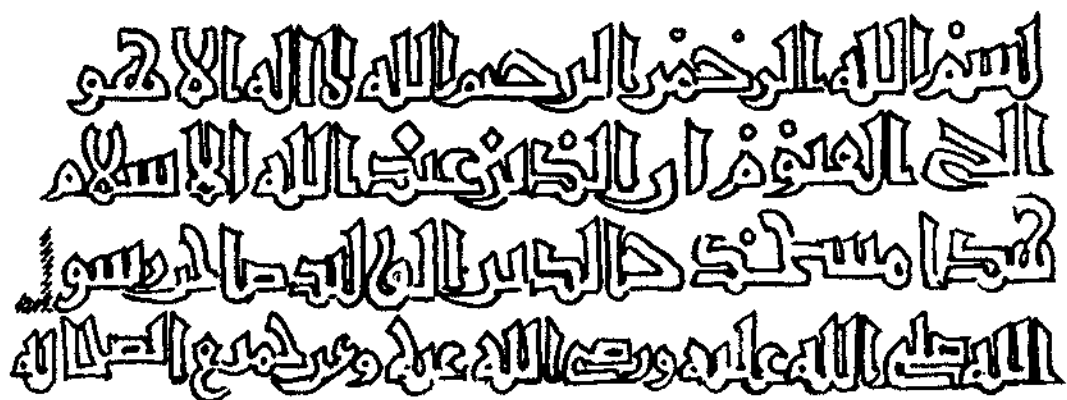 بسم الله الرحمن الرحيم الله لا اله الا هو
الحي القيوم ان الدين عند الله الاسلام
هذا مسجد خالد بن الوليد صاحب رسول
الله صلى الله عليه ورضي الله عنه وعن جميع الصحابه